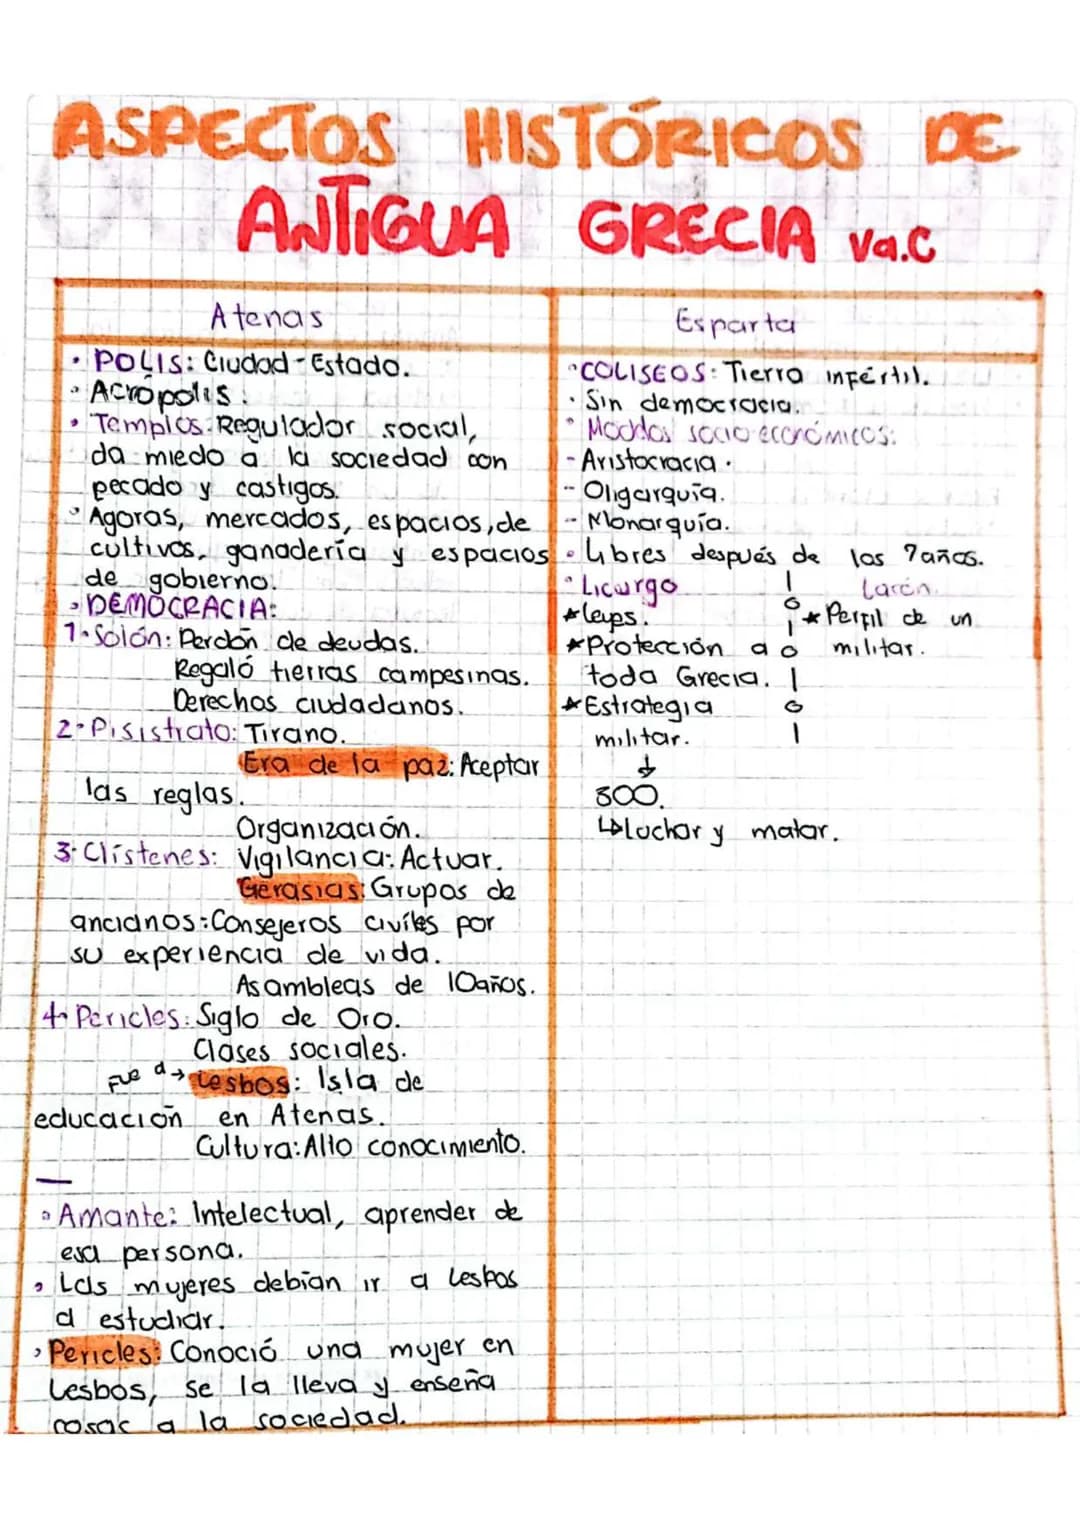 ASPECTOS HISTÓRICOS DE
ANTIGUA GRECIA Va.C
Atenas
• POLIS: Ciudad-Estado.
• Acrópolis:
• Templos: Regulador social,
da miedo a la sociedad con
pecado y castigos.
• Agoras, mercados, espacios, de
cultivos, ganadería y espacios
de gobierno.
• DEMOCRACIA:
1· Solón: Perdón de deudas.
Regaló tierras campesinas.
Derechos ciudadanos.
2· Pisistrato: Tirano.
Era de la paz: Aceptar
las reglas.
Organización.
3· Clístenes: Vigilancia: Actuar.
Gerasias: Grupos de
ancianos: Consejeros civíles por
su experiencia de vida.
Asambleas de 10años.
4· Pericles: Siglo de Oro.
Clases sociales.
Fue a → Lesbos: Isla de
educación en Atenas.
Cultura: Alto conocimiento.
—
• Amante: Intelectual, aprender de
esa persona.
• Las mujeres debían ir a Lesbos
a estudiar.
• Pericles: Conoció una mujer en
Lesbos, se la lleva y enseña
cosas a la sociedad.
Esparta
• COLISEOS: Tierra infértil.
• Sin democracia.
• Modos socio económicos:
- Aristocracia.
- Oligarquía.
- Monarquía.
• Libres después de los 7 años.
• Licurgo
★ leyes.
★ Protección a
toda Grecia.
★ Estrategia
militar.
↓
300.
↳ Luchar y matar.
★ Perfil de un
militar.